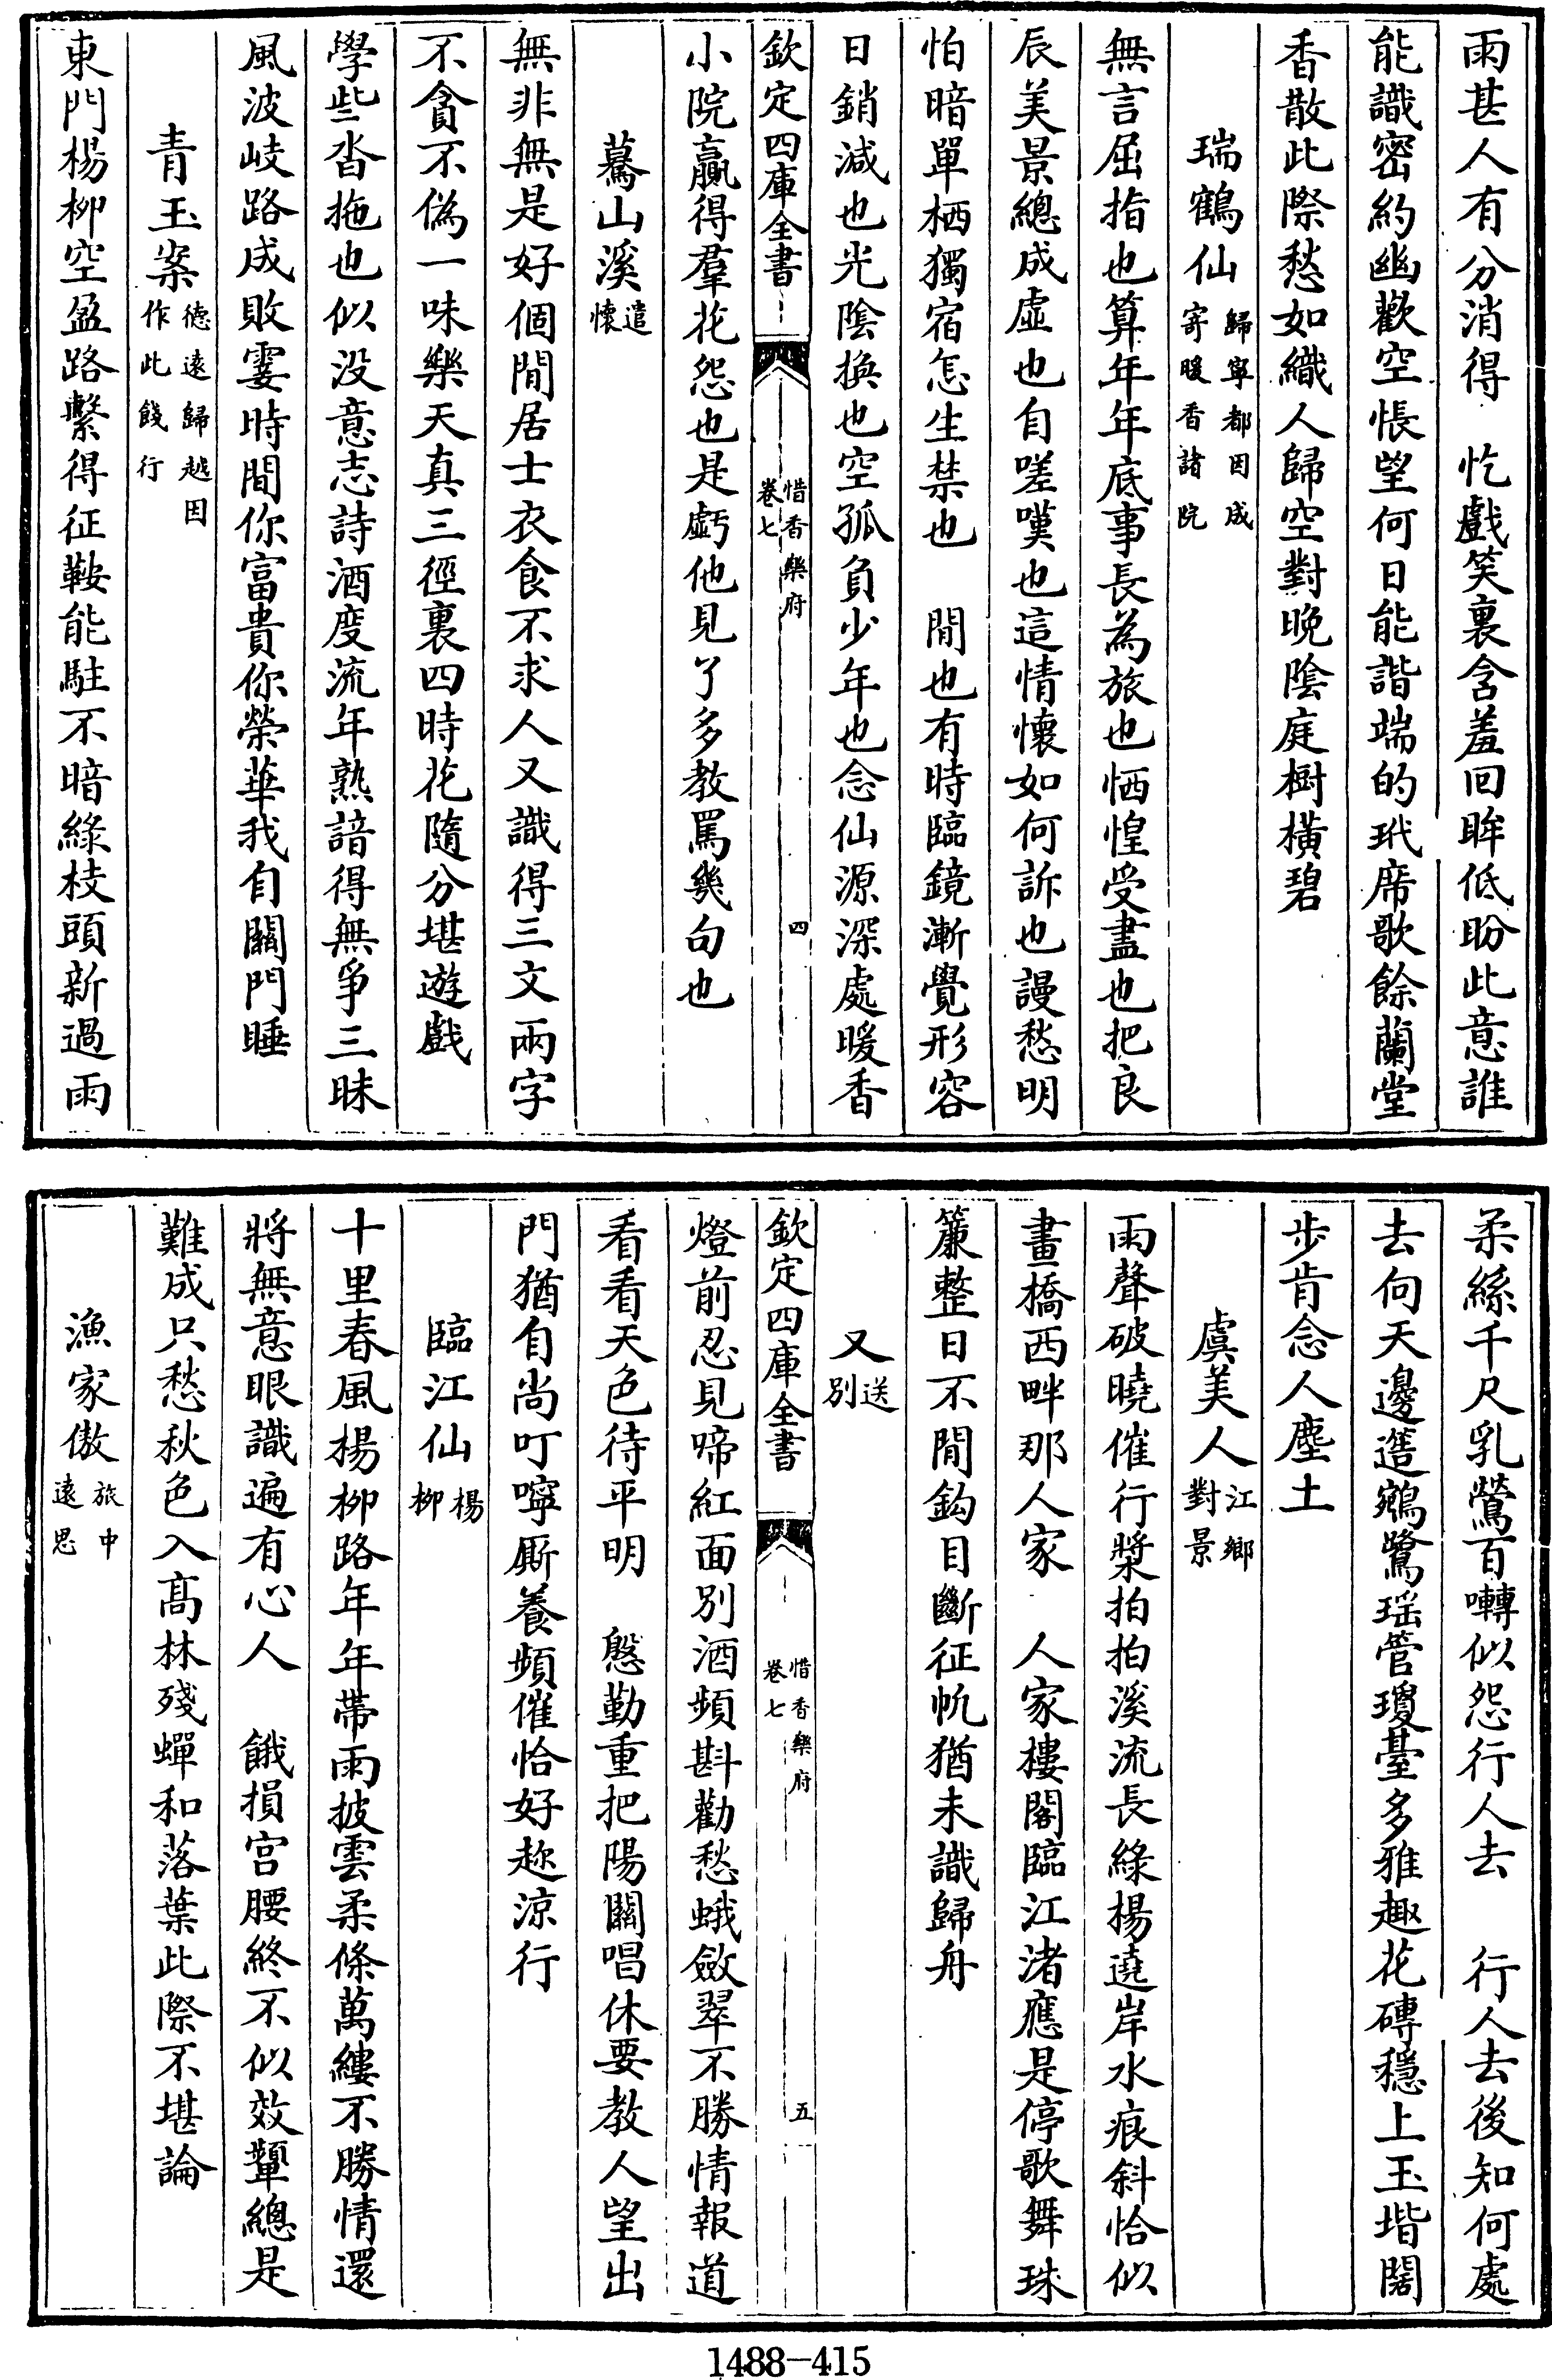 雨甚人有分消得　忔戲笑裏含羞回眸低盼此意誰
能識密約幽歡空悵望何日能諧端的玳席歌餘蘭堂
香散此際愁如織人歸空對晚陰庭樹橫碧
瑞鶴仙
歸寧都因成
寄暖香諸院
無言屈指也算年年底事長為旅也恓惶受盡也把良
辰美景總成虛也自嗟嘆也這情懷如何訴也謾愁明
怕暗單栖獨宿怎生禁也　閒也有時臨鏡漸覺形容
日銷減也光陰換也空孤負少年也念仙源深處暖香
欽定四庫全書
惜香樂府
卷七
四
小院贏得羣花怨也是虧他見了多教罵幾句也
驀山溪
遣
懷
無非無是好個閒居士衣食不求人又識得三文兩字
不貪不偽一味樂天真三徑裏四時花隨分堪遊戲
學些沓拖也似没意志詩酒度流年熟諳得無爭三昧
風波岐路成敗霎時間你富貴你榮華我自關門睡
青玉案
徳遠歸越因
作此餞行
東門楊柳空盈路繫得征鞍能駐不暗綠枝頭新過雨
柔絲千尺乳鶯百囀似怨行人去　行人去後知何處
去向天邊簉鵷鷺瑶管瓊臺多雅趣花磚穩上玉堦闊
步肯念人塵土
虞美人
江鄉
對景
雨聲破曉催行槳拍拍溪流長綠楊遶岸水痕斜恰似
畫橋西畔那人家　人家樓閣臨江渚應是停歌舞珠
簾整日不閒鈎目斷征帆猶未識歸舟
又
送
別
欽定四庫全書
惜香樂府
卷七
五
燈前忍見啼紅面別酒頻斟勸愁蛾斂翠不勝情報道
看看天色待平明　慇勤重把陽關唱休要教人望出
門猶自尚叮嚀厮養頻催恰好趂涼行
臨江仙
楊
柳
十里春風楊柳路年年帶雨披雲柔條萬縷不勝情還
將無意眼識遍有心人　餓損宮腰終不似效顰總是
難成只愁秋色入髙林殘蟬和落葉此際不堪論
漁家傲
旅中
遠思
1488-415